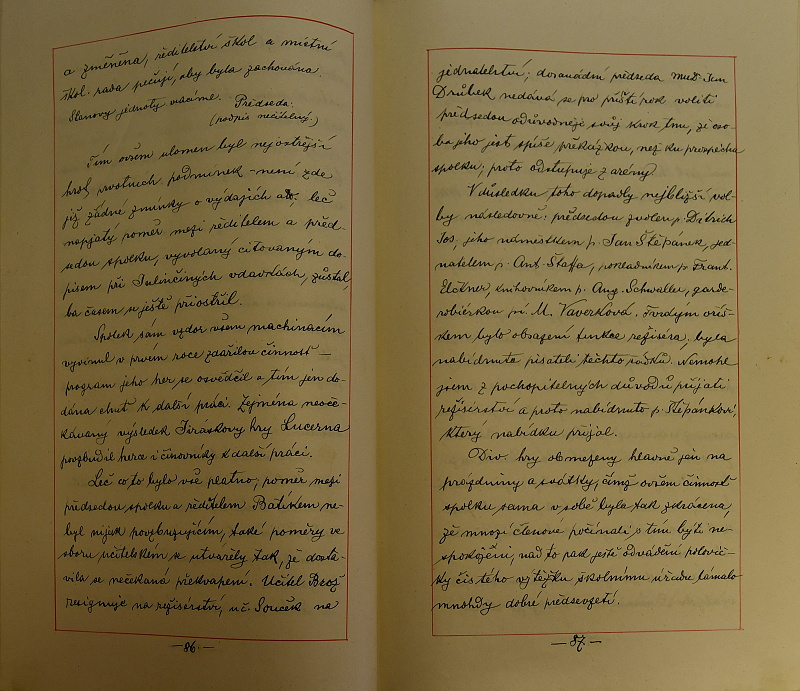 a změněna, ředitelství škol a místní
škol. rada pečují, aby byla zachována.
Stanovy jednoty vracíme. Předseda:
(podpis nečitelný.)
Tím ovšem ulomen byl nejostřejší
hrot prvotních podmínek – není zde
již žádné zmínky o výdajích atd. leč
napjatý poměr mezi ředitelem a před-
sedou spolku, vyvolaný citovaným do-
pisem při Julinčiných vdavkách, zůstal,
ba časem se ještě přiostřil.
Spolek sám vzdor všem machinacím
vyvinul v prvém roce zdařilou činnost –
program jeho her se osvědčil a tím jen do-
dána chuť k další práci. Zejména neoče-
kávaný výsledek Jiráskovy hry Lucerna
povzbudil herce i činovníky k další práci.
Leč co to bylo vše platno; poměr mezi
předsedou spolku a ředitelem Batíkem ne-
byl nijak povzbuzujícím, také poměry ve
sboru učitelském se utvářely tak, že dosta-
vila se nečekaná překvapení. Učitel Brož
resignuje na režisérství, uč. Souček na
–86.–
jednatelství; dosavádní předseda
Drůbek nedává se pro příští rok voliti
předsedou odůvodněje svůj krok tím, že oso-
ba jeho jest spíše překážkou, než ku prospěchu
spolku; proto odstupuje z arény.
V důsledku toho dopadly nejbližší vol-
by následovně: předsedou zvolen p. Ditrich
Jos., jeho náměstkem p. Jan Štěpánek, jed-
natelem p. Ant. Štaffa, pokladníkem p. Frant.
Elzkner, knihovníkem p. Aug. Schwaller, garde-
robiérkou pí. M. Vaverková. Tvrdým oříš-
kem bylo obsazení funkce režiséra; byla
nabídnuta pisateli těchto řádků. Nemohl
jsem z pochopitelných důvodů přijati
režisérství a proto nabídnuto p. Štěpánkovi,
který nabídku přijal.
Div. hry obmezeny hlavně jen na
prázdniny a svátky, čímž ovšem činnost
spolku sama v sobě byla tak zkrácena,
že mnozí členové počínali s tím býti ne-
spokojeni, nad to pak ještě odvádění polovič-
ky čistého výtěžku školnímu úřadu lámalo
mnohdy dobré předsevzetí.
–87.–